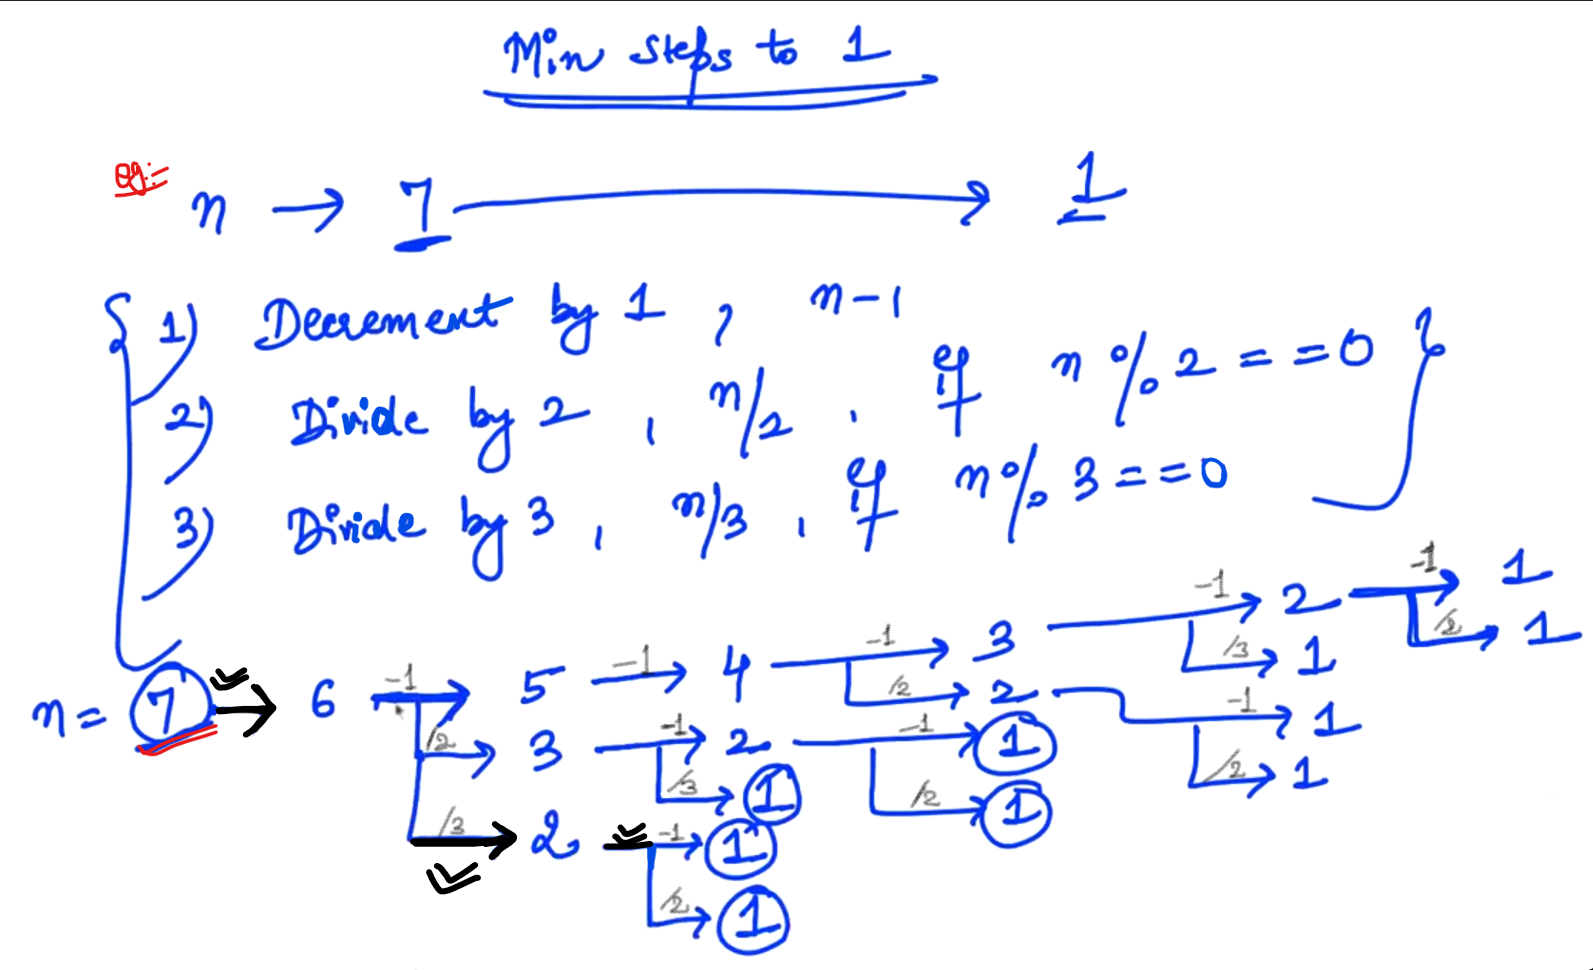 Min Steps to 1
eg:=
n → 7 → 1
{ 1) Decrement by 1 , n-1
2) Divide by 2 , n/2 , if n % 2 == 0 }
3) Divide by 3 , n/3 , if n % 3 == 0
-1 → 1
-1 → 2 /2 → 1
-1 → 3 /3 → 1
n = 7 → 6 -1 → 5 -1 → 4 /2 → 2 -1 → 1
/2 → 1
/2 → 3 -1 → 2 -1 → 1
/3 → 1 /2 → 1
/3 → 2 -1 → 1
/2 → 1